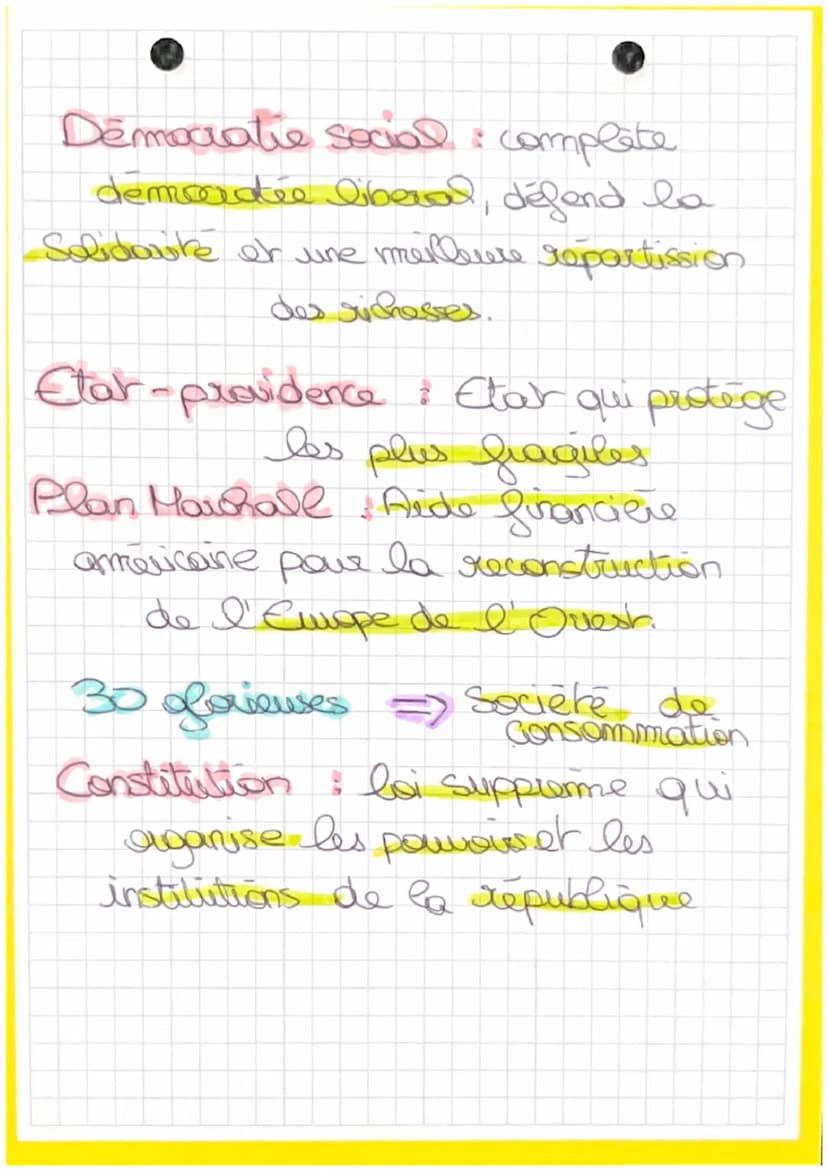 Démocratie social : complète
démocratie liberal, défend la
Solidarité et une meilleure répartission
des richesses.
Etat-providence : Etat qui protège
les plus fragiles
Plan Marshall : Aide financière
américaine pour la reconstruction
de l'Europe de l'Ouest.
30 glorieuses => Société de
consommation
Constitution : loi suppreme qui
organise les pouvoirs et les
institutions de la république